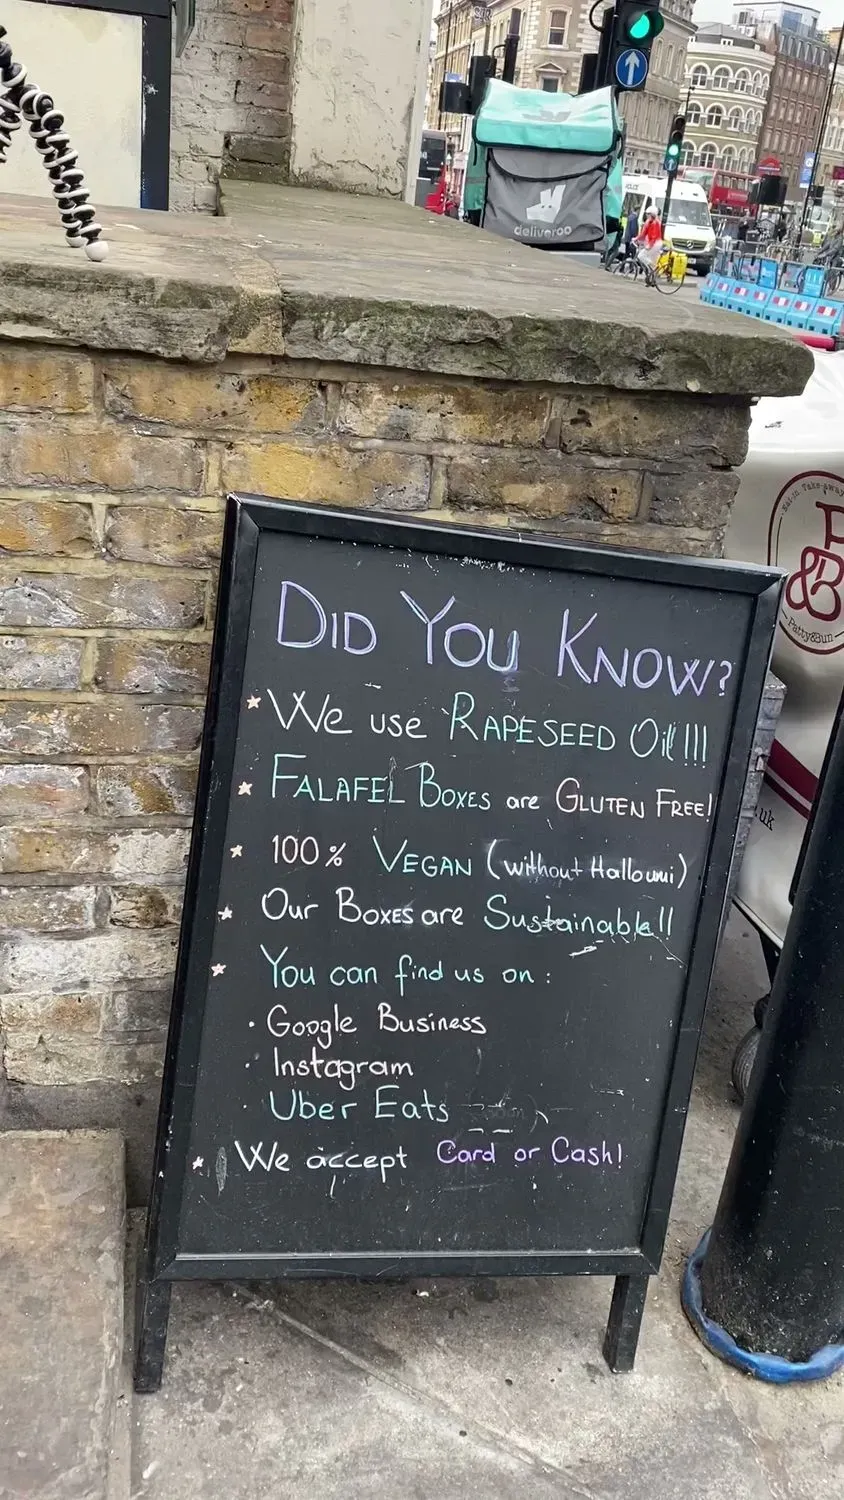 deliveroo
POLICE
Eat-in Take-away
P
&B
Patty&Bun
.uk
DID YOU KNOW?
We use RAPESEED Oil!!!
FALAFEL BOXES are GLUTEN FREE!
100% VEGAN (without Halloumi)
Our BOXES are Sustainable!!
You can find us on:
· Google Business
· Instagram
· Uber Eats
We accept Card or Cash!